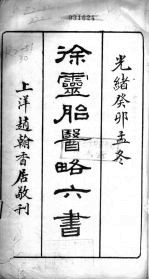 031624
光緒癸卯孟冬
徐靈胎醫略六書
上洋趙翰香居敬刊